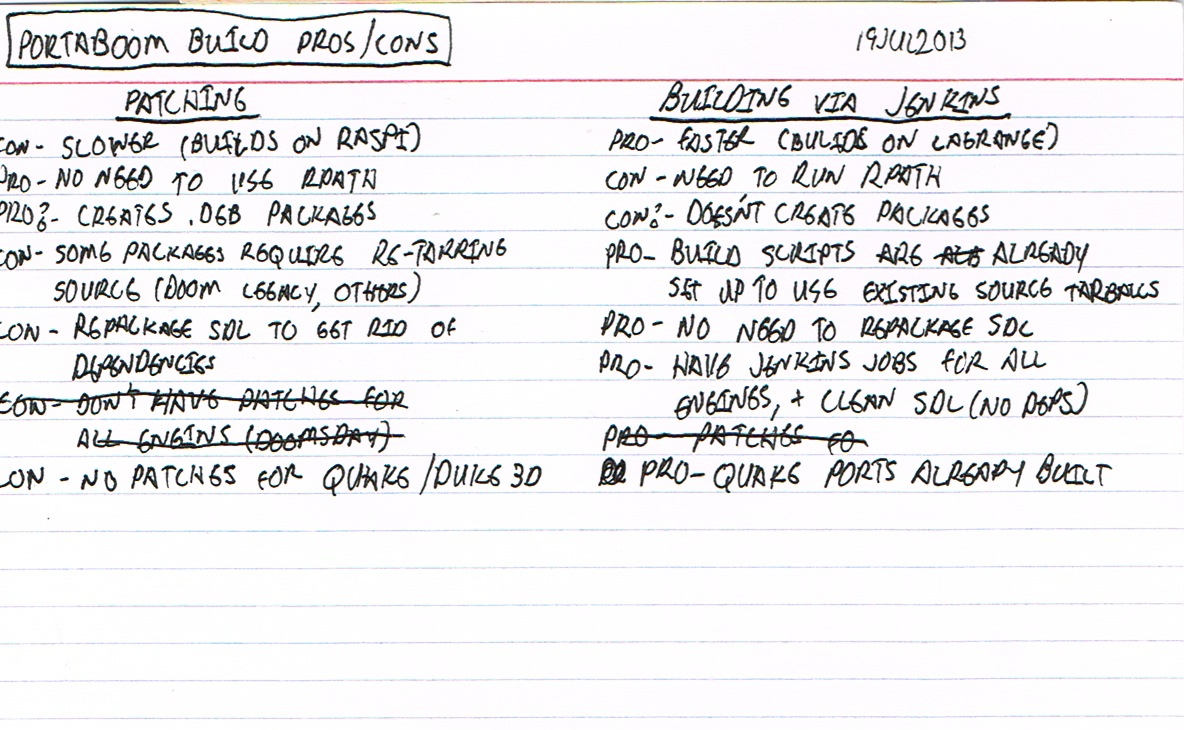 PORTABOOM BUILD PROS/CONS
19JUL2013
PATCHING
CON- SLOWER (BUILDS ON RASPI)
PRO- NO NEED TO USE RPATH
PRO?- CREATES .DEB PACKAGES
CON- SOME PACKAGES REQUIRE RE-TARRING
SOURCE (DOOM LEGACY, OTHERS)
CON - REPACKAGE SDL TO GET RID OF
DEPENDENCIES
CON- DON'T HAVE PATCHES FOR
ALL ENGINS (DOOMSDAY)
CON - NO PATCHES FOR QUAKE/DUKE 3D
BUILDING VIA JENKINS
PRO- FASTER (BUILDS ON LAGRANGE)
CON - NEED TO RUN RPATH
CON?- DOESN'T CREATE PACKAGES
PRO- BUILD SCRIPTS ARE ALREADY
SET UP TO USE EXISTING SOURCE TARBALLS
PRO- NO NEED TO REPACKAGE SDL
PRO- HAVE JENKINS JOBS FOR ALL
ENGINES, + CLEAN SDL (NO DEPS)
PRO- PATCHES FO
PRO- QUAKE PORTS ALREADY BUILT